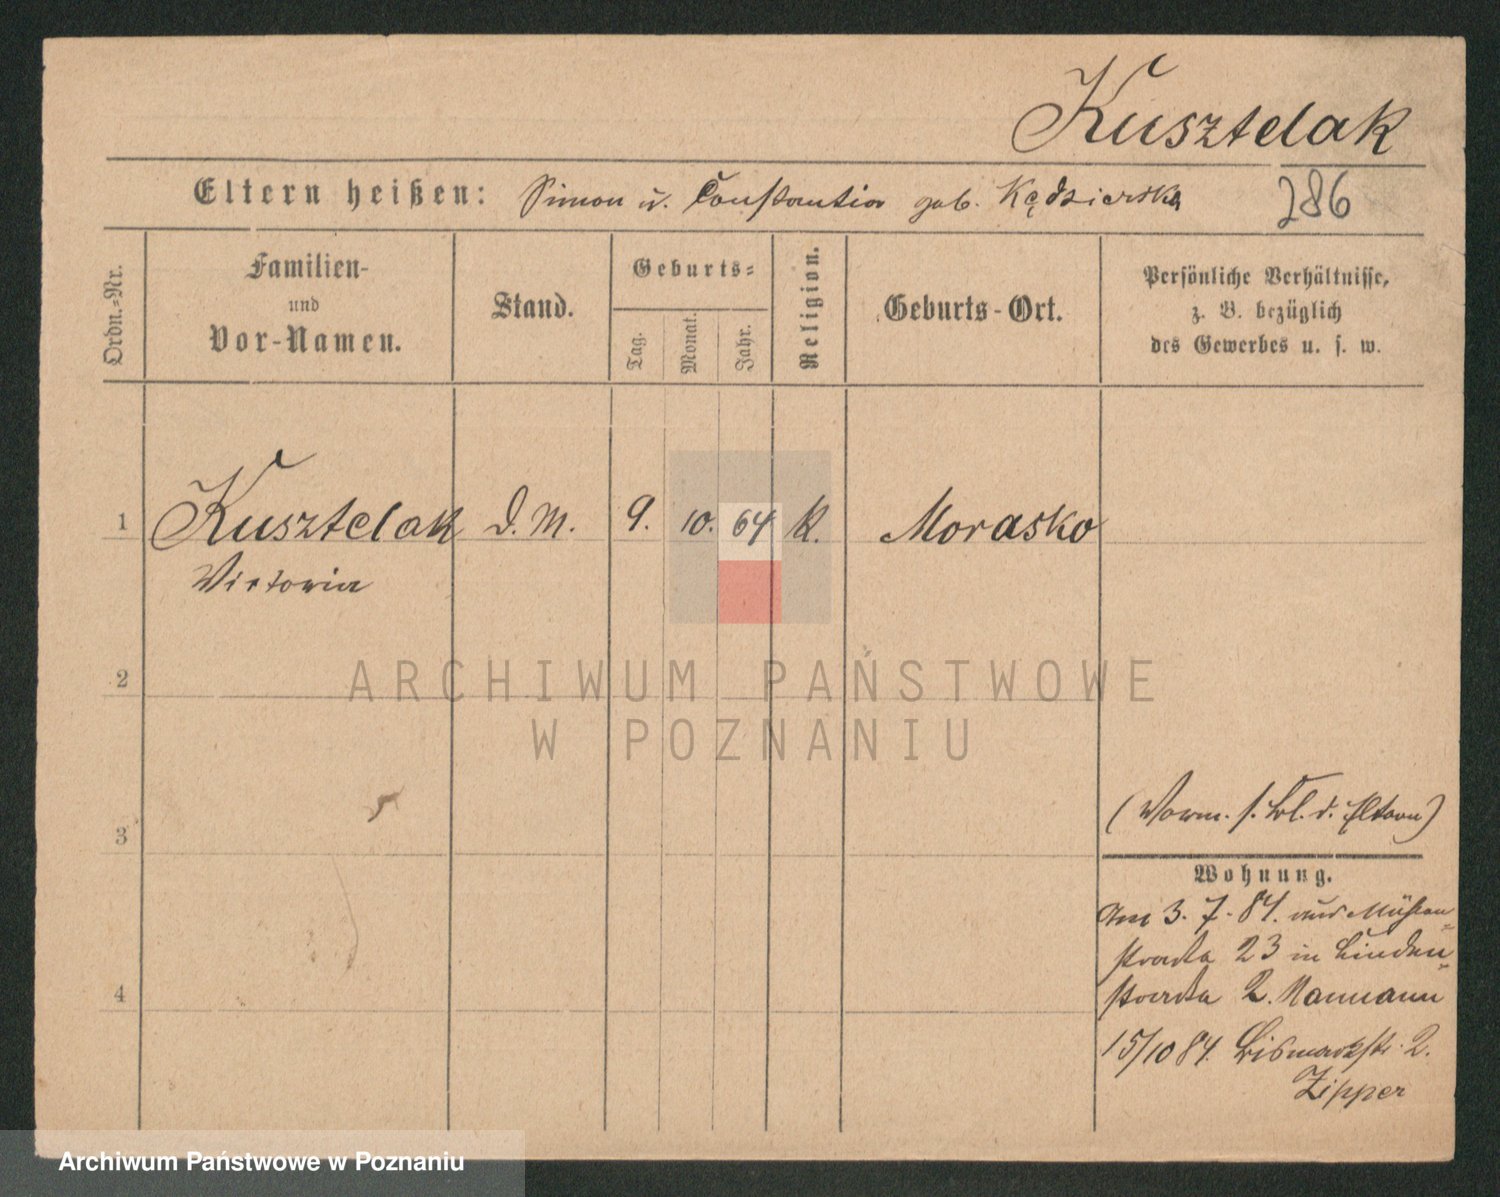 Kusztelak
Eltern heißen: Simon u. Constantia geb. Kędzierska 286
Ordn.-Nr.
Familien-
und
Vor-Namen.
Stand.
Geburts-
Tag.
Monat.
Jahr.
Religion.
Geburts-Ort.
Persönliche Verhältnisse,
z. B. bezüglich
des Gewerbes u. s. w.
1 Kusztelak D. M. 9. 10. 64 K. Morasko
Victoria
2
ARCHIWUM PAŃSTWOWE
W POZNANIU
3
4
(Verm. s. Bl. d. Eltern)
Wohnung.
Am 3. 7. 84. aus Mühlen-
straße 23 in Linden-
straße 2. Naumann
15/10 84. Bismarckstr. 2.
Zipper
Archiwum Państwowe w Poznaniu